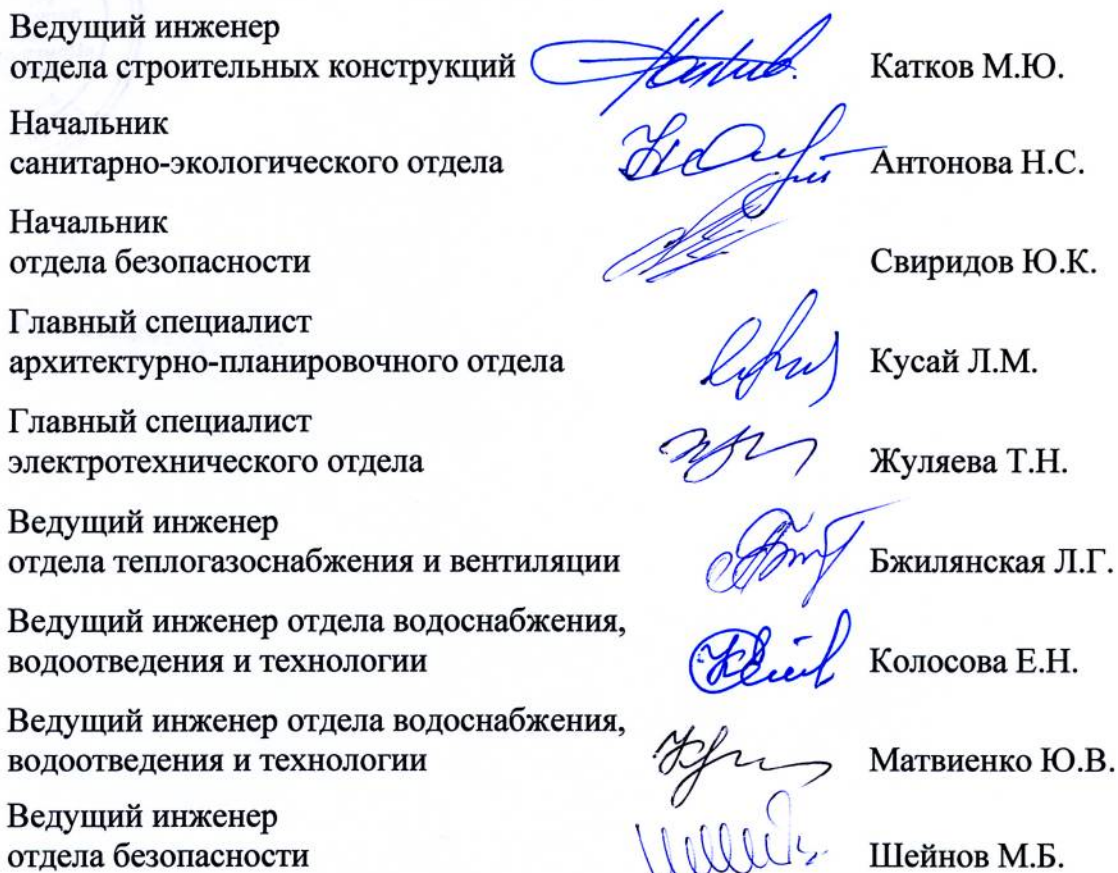 Ведущий инженер
отдела строительных конструкций Катков М.Ю.
Начальник
санитарно-экологического отдела Антонова Н.С.
Начальник
отдела безопасности Свиридов Ю.К.
Главный специалист
архитектурно-планировочного отдела Кусай Л.М.
Главный специалист
электротехнического отдела Жуляева Т.Н.
Ведущий инженер
отдела теплогазоснабжения и вентиляции Бжилянская Л.Г.
Ведущий инженер отдела водоснабжения,
водоотведения и технологии Колосова Е.Н.
Ведущий инженер отдела водоснабжения,
водоотведения и технологии Матвиенко Ю.В.
Ведущий инженер
отдела безопасности Шейнов М.Б.